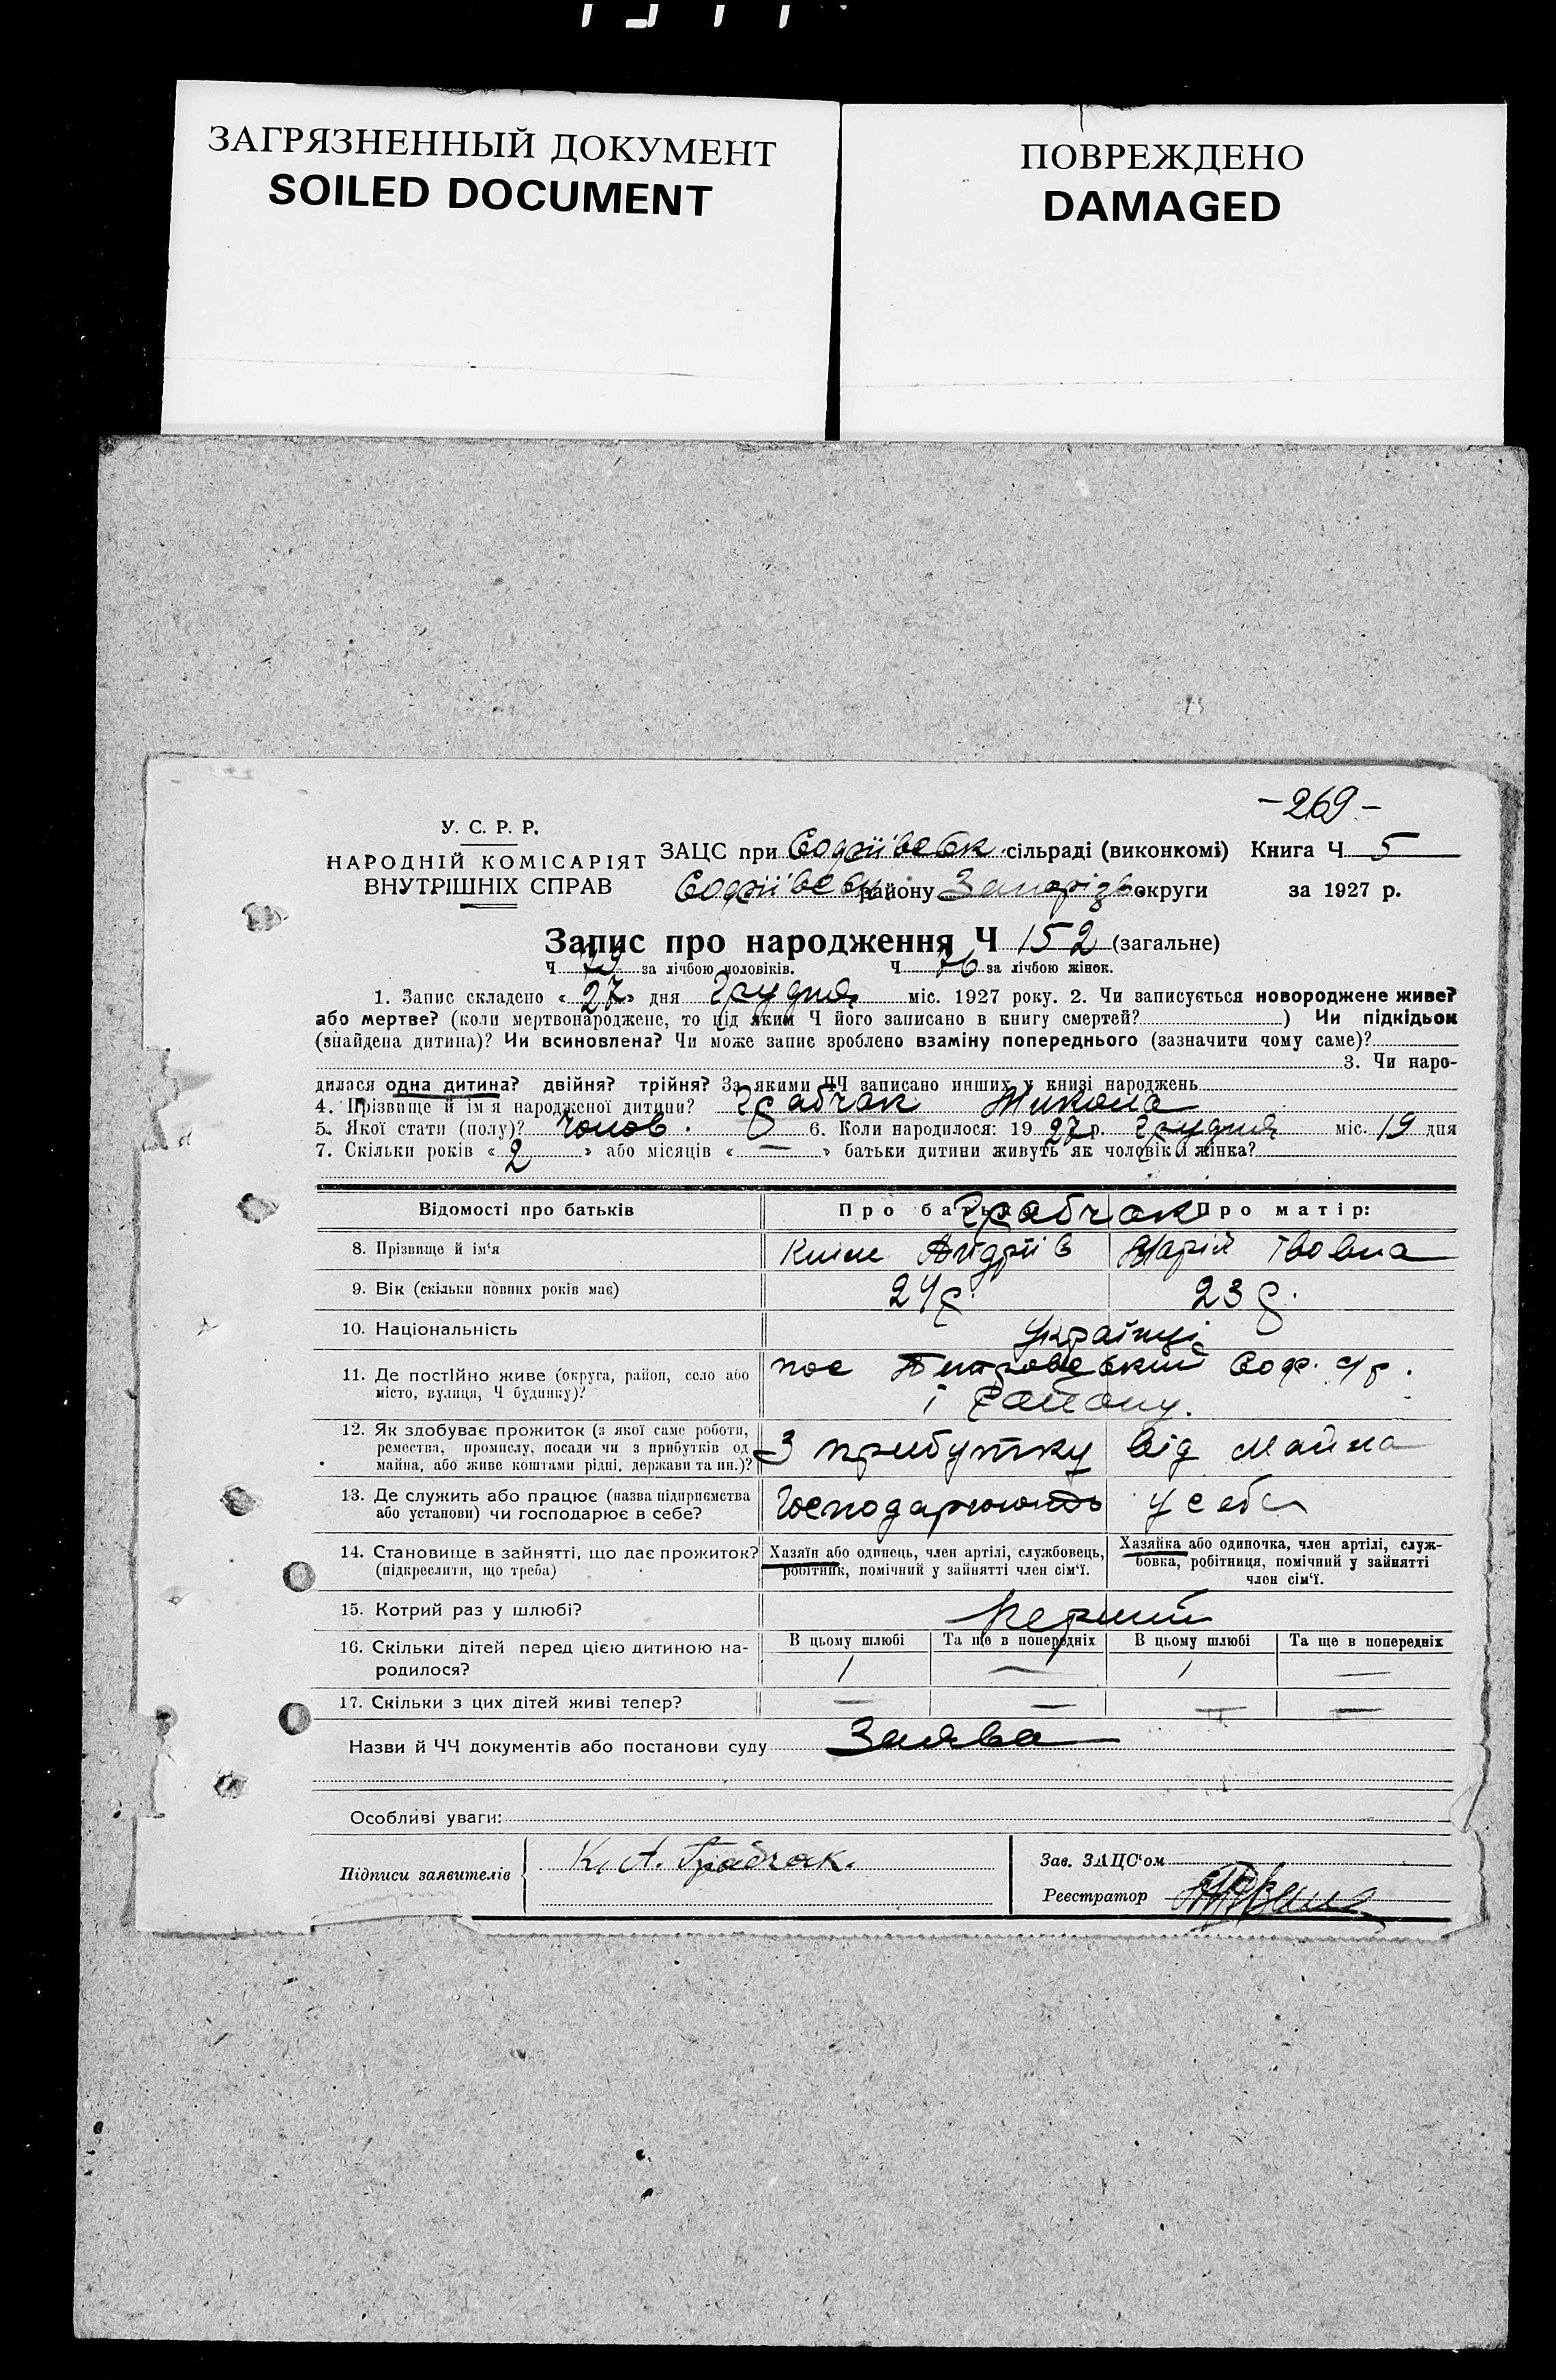 ЗАГРЯЗНЕННЫЙ ДОКУМЕНТ
SOILED DOCUMENT
ПОВРЕЖДЕНО
DAMAGED
-269-
У. С. Р. Р.
НАРОДНІЙ КОМІСАРІЯТ
ВНУТРІШНІХ СПРАВ
ЗАЦС при Софіївськ. сільраді (виконкомі) Книга Ч 5
Софіївськ. району Запорізь округи за 1927 р.
Запис про народження Ч 152 (загальне)
Ч за лічбою чоловіків. Ч 76 за лічбою жінок.
1. Запис складено «27» дня Грудня міс. 1927 року. 2. Чи записується новороджене живе?
або мертве? (коли мертвонароджене, то під яким Ч його записано в книгу смертей? ) Чи підкідьок
(знайдена дитина)? Чи всиновлена? Чи може запис зроблено взаміну попереднього (зазначити чому саме)?
3. Чи наро-
дилася одна дитина? двійня? трійня? За якими ЧЧ записано инших у книзі народжень
4. Прізвище й ім'я народженої дитини? Грабчак Микола
5. Якої стати (полу)? Чолов. 6. Коли народилося: 1927 р. Грудня міс. 19 дня
7. Скільки років «2» або місяців «—» батьки дитини живуть як чоловік і жінка?
Відомості про батьків Про батька: Про матір:
Грабчак
8. Прізвище й ім'я Клим Андріїв Марія Івовна
9. Вік (скільки повних років має) 24 р. 23 р.
10. Національність Українці
11. Де постійно живе (округа, район, село або
місто, вулиця, Ч будинку)?
пос Петровський Соф. с/р.
і Району.
12. Як здобуває прожиток (з якої саме роботи,
ремества, промислу, посади чи з прибутків од
майна, або живе коштами рідні, держави та ин.)?
З прибутку від майна
13. Де служить або працює (назва підприємства
або установи) чи господарює в себе?
Господарюють у себе
14. Становище в зайнятті, що дає прожиток?
(підкреслити, що треба)
Хазяїн або одинець, член артілі, службовець,
робітник, помічний у зайнятті член сім'ї.
Хазяйка або одиночка, член артілі, служ-
бовка, робітниця, помічний у зайнятті
член сім'ї.
15. Котрий раз у шлюбі? Перший
16. Скільки дітей перед цією дитиною на-
родилося?
В цьому шлюбі Та ще в попередніх В цьому шлюбі Та ще в попередніх
1 — 1 —
17. Скільки з цих дітей живі тепер? — — — —
Назви й ЧЧ документів або постанови суду Заява
Особливі уваги:
Підписи заявителів К. А. Грабчак.
Зав. ЗАЦС'ом
Реєстратор